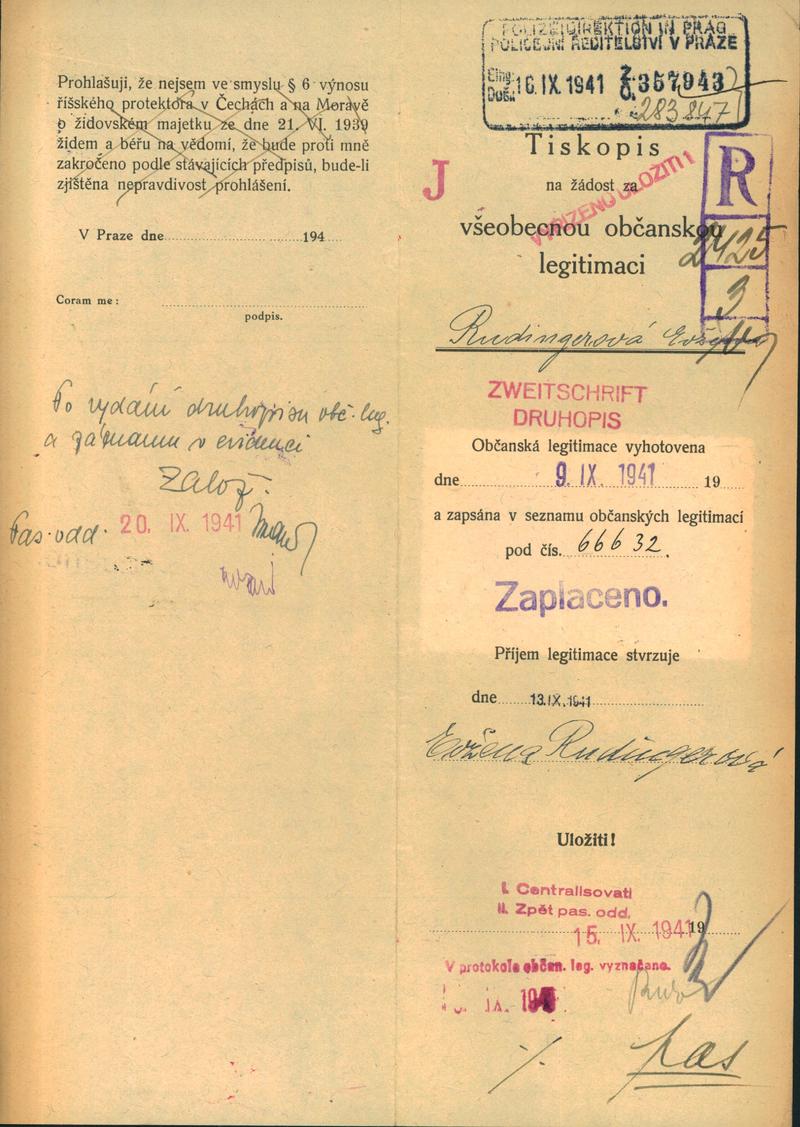 Prohlašuji, že nejsem ve smyslu § 6 výnosu
říšského protektora v Čechách a na Moravě
o židovském majetku ze dne 21. VI. 1939
židem a béřu na vědomí, že bude proti mně
zakročeno podle stávajících předpisů, bude-li
zjištěna nepravdivost prohlášení.
V Praze dne 194
Coram me:
podpis.
Po vydání druhopisu obč. leg.
a záznamu v evidenci
Založ.
Pas. odd. 20. IX. 1941
POLIZEIDIREKTION IN PRAG
POLICEJNÍ ŘEDITELSTVÍ V PRAZE
Eing.
Došl. 16. IX. 1941 Z. Č. 357943
283 847
Tiskopis
J
na žádost za
VYŘÍZENO ULOŽITI!
R
všeobecnou občanskou
2425
legitimaci
3
Rudingerová
ZWEITSCHRIFT
DRUHOPIS
Občanská legitimace vyhotovena
dne 9. IX. 1941 19
a zapsána v seznamu občanských legitimací
pod čís. 66632.
Zaplaceno.
Příjem legitimace stvrzuje
dne 13. IX. 1941
Evžena Rudingerová
Uložiti!
I. Centralisovati
II. Zpět pas. odd.
15. IX. 1941 19
V protokole občan. leg. vyznačeno.
IX. 194
pas